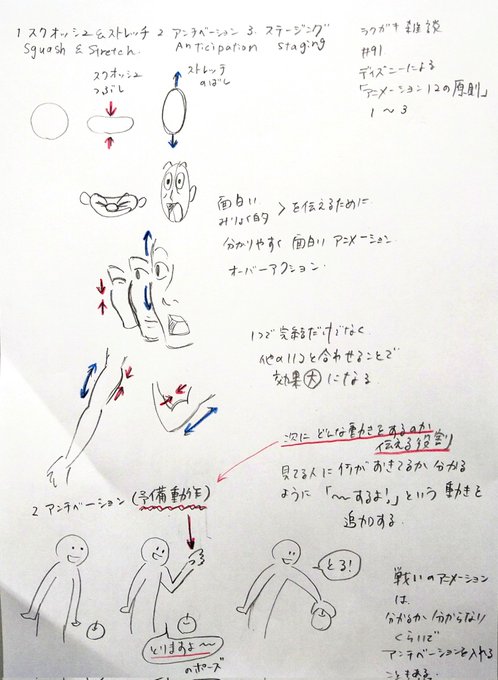 1 スクオッシュ&ストレッチ 2 アンチベーション 3. ステージング
Squash & Stretch. Anticipation staging
ラクガキ雑談
#91
ディズニーによる
「アニメーション12の原則」
1〜3
スクオッシュ
つぶし
ストレッチ
のばし
面白い
みりょく的 > を伝えるために
分かりやすく 面白い アニメーション
オーバーアクション
1つで完結だけでなく
他の11コと合わせることで
効果大になる
次に どんな動きをするのか
伝える役割
見てる人に何がおきてるか 分かる
ように 「〜するよ!」という 動きを
追加する.
2 アンチベーション (予備動作)
とりますよ〜
のポーズ
とる!
戦いのアニメーション
は
分かるか分からなり
くらいで
アンチベーションを入れる
こともある.